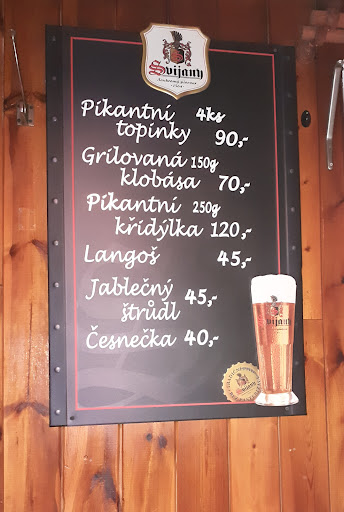 Svijany
Pikantní 4ks
topinky 90,-
Grilovaná 150g
klobása 70,-
Pikantní 250g
křidýlka 120,-
Langoš 45,-
Jablečný
štrůdl 45,-
Česnečka 40,-
Svijany